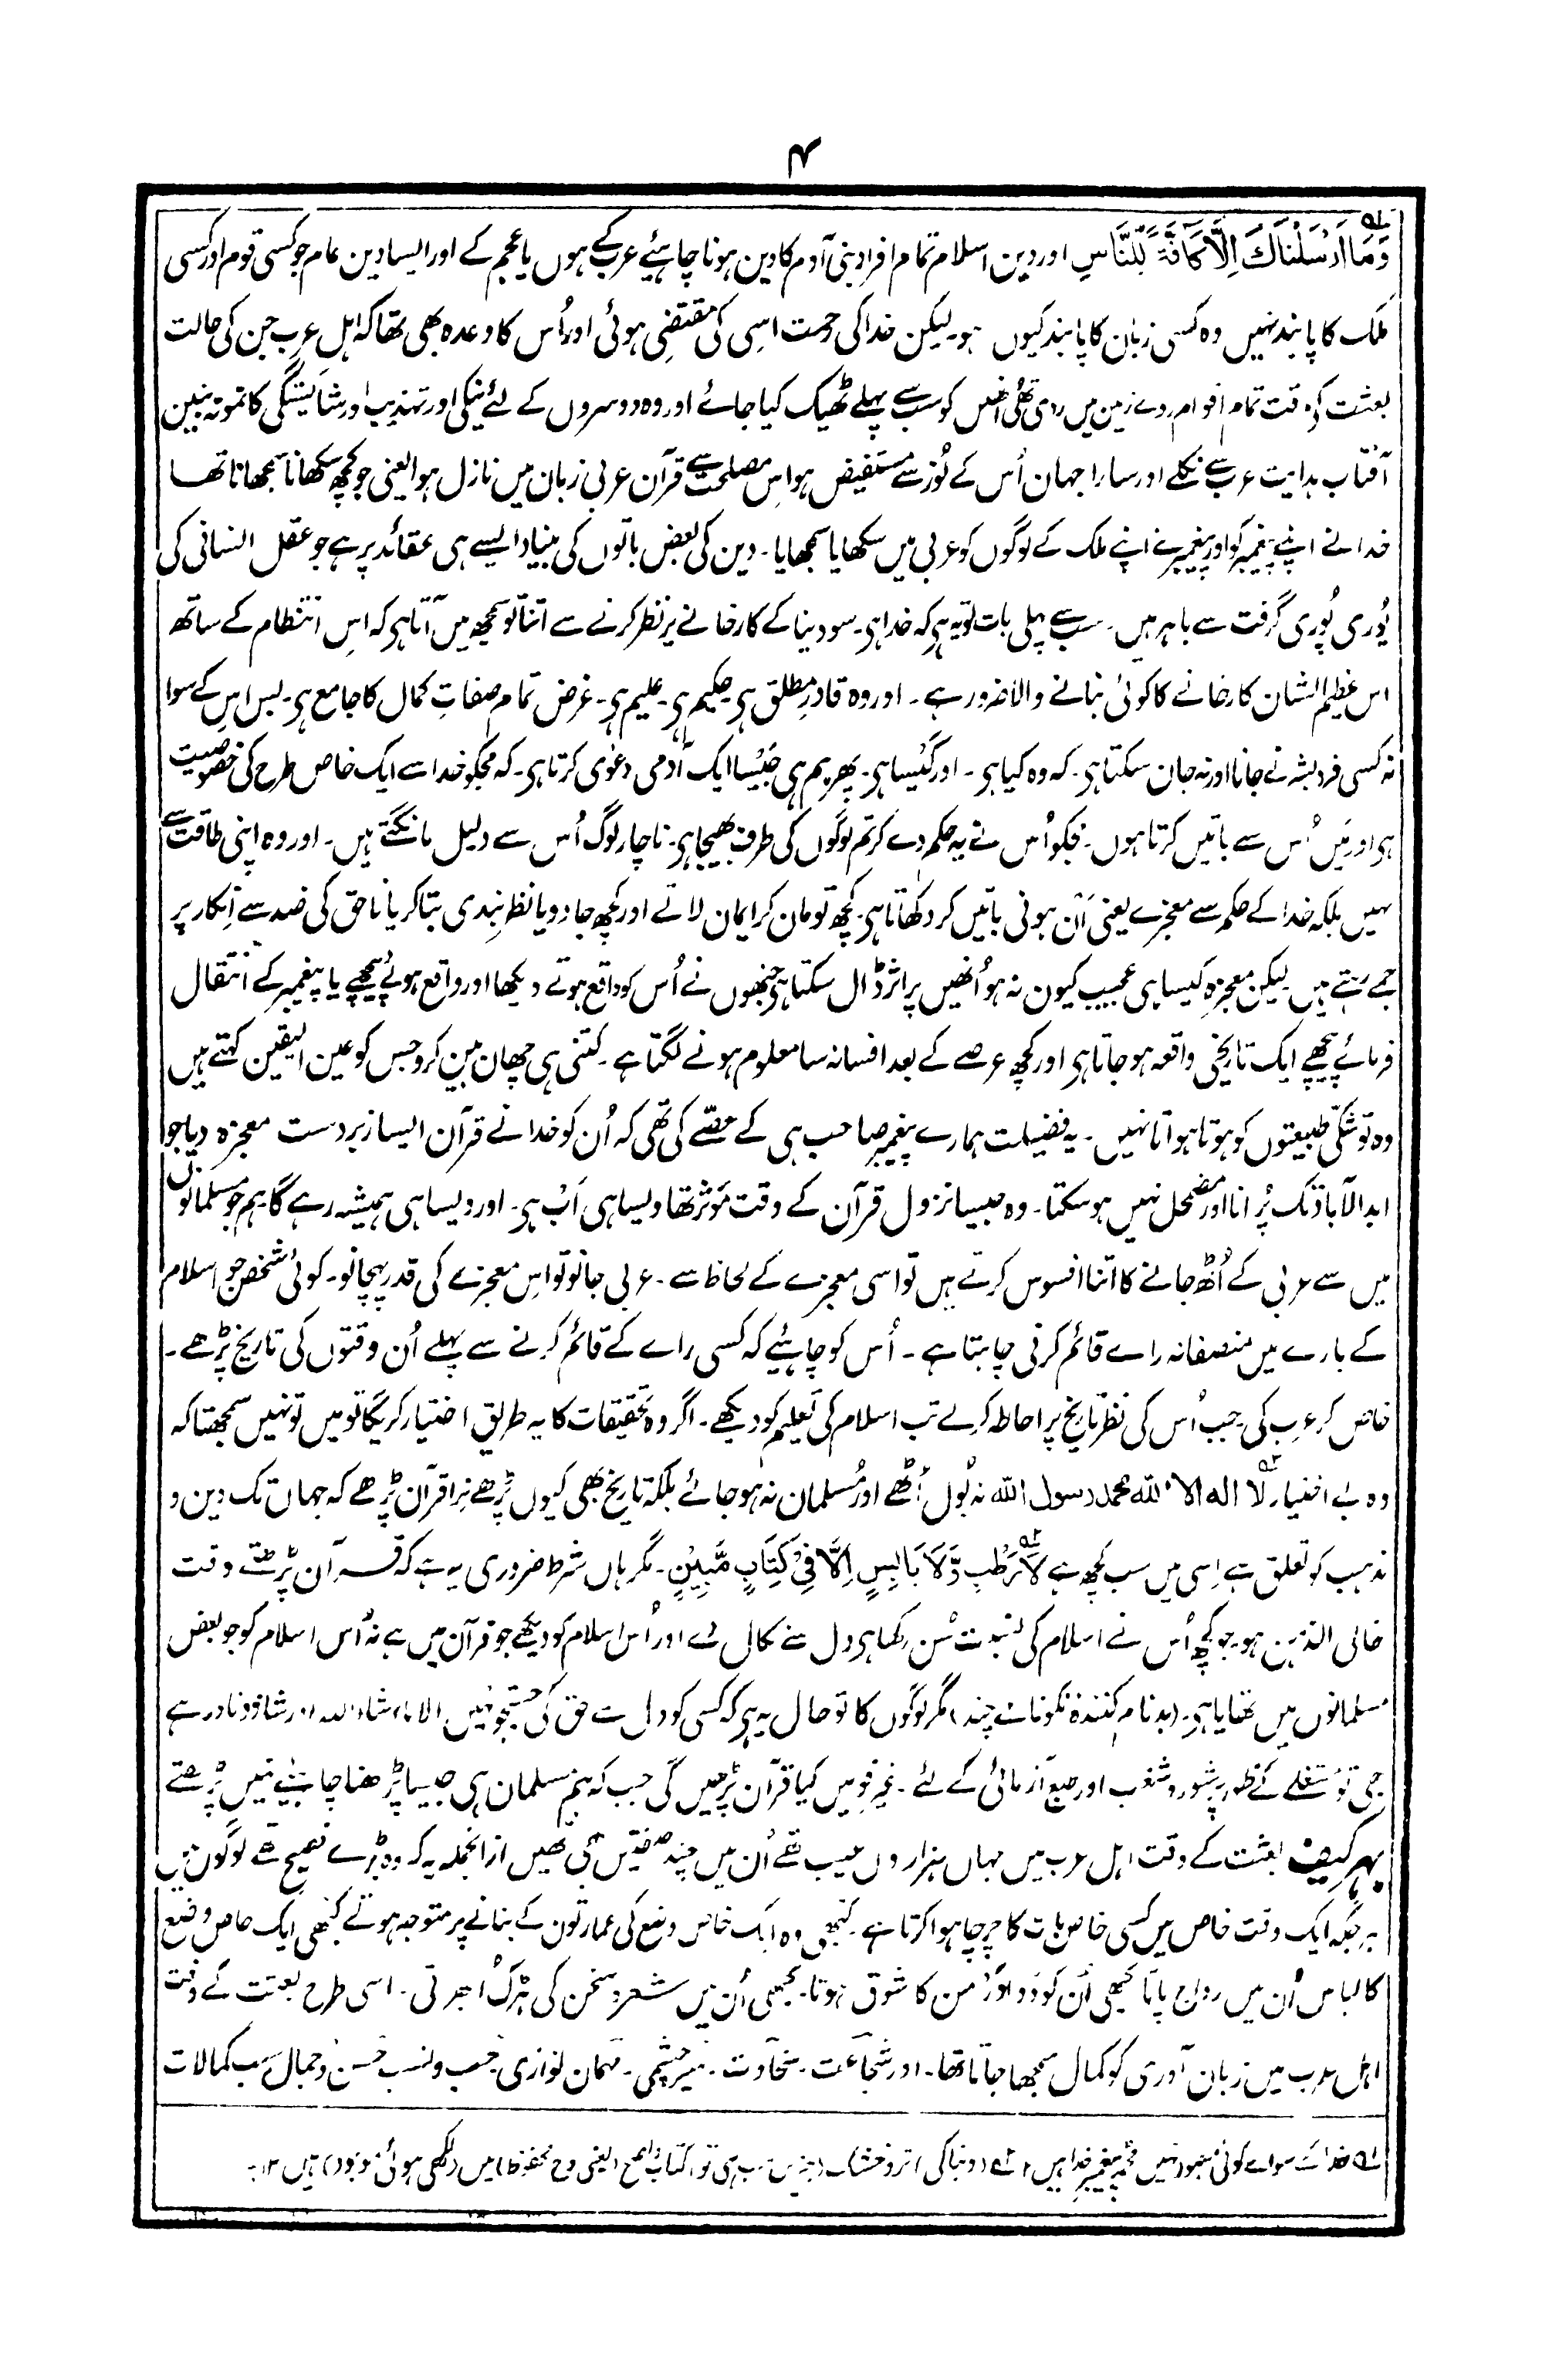 ۴
وَمَا اَرْسَلْنَاكَ اِلَّا كَافَّةً لِّلنَّاسِ اور دین اسلام تمام افراد بنی آدم کا دین ہونا چاہیئے عرب کے ہوں یا عجم کے اور ایسا دین عام جو کسی قوم اور کسی
ملک کا پابند نہیں وہ کسی زبان کا پابند کیوں ہو۔ لیکن خدا کی رحمت اسی کی مقتضی ہوئی اور اُس کا وعدہ بھی تھا کہ اہل عرب جن کی حالت
بعثت کے وقت تمام اقوام روے زمین میں ردی تھی اُنھیں کو سب سے پہلے ٹھیک کیا جائے اور وہ دوسروں کے لئے نیکی اور تہذیب اور شایستگی کا نمونہ بنیں
آفتاب ہدایت عرب سے نکلے اور سارا جہان اُس کے نُور سے مستفیض ہو اس مصلحت سے قرآن عربی زبان میں نازل ہوا یعنی جو کچھ سکھانا سمجھانا تھا
خدا نے اپنے پیغمبر کو اور پیغمبر نے اپنے ملک کے لوگوں کو عربی میں سکھایا سمجھایا۔ دین کی بعض باتوں کی بنیاد ایسے ہی عقائد پر ہے جو عقل انسانی کی
پُوری پُوری گرفت سے باہر ہیں۔ سب سے پہلی بات تو یہ ہی کہ خدا ہی۔ سو دنیا کے کارخانے پر نظر کرنے سے اتنا تو سمجھ میں آتا ہی کہ اس انتظام کے ساتھ
اس عظیم الشان کارخانے کا کوئی بنانے والا ضرور ہے۔ اور وہ قادر مطلق ہی حکیم ہی۔ علیم ہی۔ غرض تمام صفاتِ کمال کا جامع ہی۔ بس اس کے سوا
نہ کسی فرد بشر نے جانا اور نہ جان سکتا ہی۔ کہ وہ کیا ہی۔ اور کَیسا ہی۔ پھر ہم ہی جَیسا ایک آدمی دعوٰی کرتا ہی۔ کہ مجکو خدا سے ایک خاص طرح کی خصوصیت
ہی اور مَیں اُس سے باتیں کرتا ہوں۔ مجکو اُس نے یہ حکم دے کر تم لوگوں کی طرف بھیجا ہی۔ ناچار لوگ اُس سے دلیل مانگتے ہیں۔ اور وہ اپنی طاقت سے
نہیں بلکہ خدا کے حکم سے معجزے یعنی اَن ہونی باتیں کر دکھاتا ہی۔ کچھ تو مان کر ایمان لاتے اور کچھ جادو یا نظر بندی بتا کر یا ناحق کی ضد سے اِنکار پر
جمے رہتے ہیں لیکن معجزہ کیسا ہی عجیب کیوں نہ ہو اُنھیں پر اثر ڈال سکتا ہی جنھوں نے اُس کو واقع ہوتے دیکھا اور واقع ہوئے پیچھے یا پیغمبر کے انتقال
فرمائے پیچھے ایک تاریخی واقعہ ہو جاتا ہی اور کچھ عرصے کے بعد افسانہ سا معلوم ہونے لگتا ہے۔ کتنی ہی چھان بین کرو جس کو عین الیقین کہتے ہیں
وہ تو شکّی طبیعتوں کو ہوتا ہواتا نہیں۔ یہ فضیلت ہمارے پیغمبر صاحب ہی کے حصّے کی تھی کہ اُن کو خدا نے قرآن ایسا زبردست معجزہ دیا جو
ابد الآباد تک پُرانا اور مضمحل نہیں ہو سکتا۔ وہ جیسا نزول قرآن کے وقت مَوثر تھا ویسا ہی اَب ہی۔ اور ویسا ہی ہمیشہ رہے گا۔ ہم جو مسلمانوں
میں سے عربی کے اُٹھ جانے کا اتنا افسوس کرتے ہیں تو اسی معجزے کے لحاظ سے۔ عربی جانو تو اس معجزے کی قدر پہچانو۔ کوئی شخص جو اسلام
کے بارے میں منصفانہ راے قائم کرنی چاہتا ہے۔ اُس کو چاہئیے کہ کسی راے کے قائم کرنے سے پہلے اُن وقتوں کی تاریخ پڑھے۔
خاص کر عرب کی۔ جب اُس کی نظر تاریخ پر احاطہ کر لے تب اسلام کی تعلیم کو دیکھے۔ اگر وہ تحقیقات کا یہ طریق اختیار کریگا تو میں تو نہیں سمجھتا کہ
وہ بے اختیار لا اله الا الله محمد رسول الله نہ بُول اُٹھے اور مُسلمان نہ ہو جائے بلکہ تاریخ بھی کیوں پڑھے نرا قرآن پڑھے کہ جہاں تک دین و
مذہب کو تعلق ہے اِسی میں سب کچھ ہے لَا رَطْبٍ وَّلَا يَابِسٍ اِلَّا فِيْ كِتَابٍ مُّبِيْنٍ۔ مگر ہاں شرط ضروری یہ ہے کہ قرآن پڑھتے وقت
خالی الذہن ہو۔ جو کچھ اُس نے اسلام کی نسبت سُن رکھا ہی دل سے نکال دے اور اُس اسلام کو دیکھے جو قرآن میں ہے نہ اُس اسلام کو جو بعض
مسلمانوں میں ہی۔ (بدنام کنندہ نکونامے چند) مگر لوگوں کا تو حال یہ ہی کہ کسی کو دل سے حق کی جستجو نہیں الا ماشاء اللہ اور شاذ و نادر ہے
بھی تو شغلے کے طور پر شور و شغب اور طبع آزمائی کے لئے۔ غیر قومیں کیا قرآن پڑھیں گی جب کہ ہم مسلمان ہی جیسا پڑھنا چاہئیے نہیں پڑھتے
بہر کیف بعثت کے وقت اہل عرب میں جہاں ہزاروں عیب تھے اُن میں چند صفتیں بھی تھیں ازانجملہ یہ کہ وہ بڑے فصیح تھے لوگوں میں
ہر جگہ ایک وقت خاص میں کسی خاص بات کا چرچا ہوا کرتا ہے۔ کبھی وہ ایک خاص وضع کی عمارتوں کے بنانے پر متوجہ ہوتے کبھی ایک خاص وضع
کا لباس اُن میں رواج پاتا کبھی اُن کو کا شوق ہوتا۔ کبھی اُن میں شعر و سخن کی ہڑک اُبھرتی۔ اسی طرح بعثت کے وقت
اہل عرب میں زبان آوری کو کمال سمجھا جاتا تھا۔ اور شجاعت۔ سخاوت۔ سیر چشمی۔ مہمان نوازی۔ حسب و نسب حسن و جمال سب کمالات
خدا کے سواے کوئی معبود نہیں محمد پیغمبر خدا ہیں (دنیا کی) تر و خشک (چیزیں سب ہی تو) کتاب واضح (یعنی لوح محفوظ) میں (لکھی ہوئی موجود) ہیں ۱۲